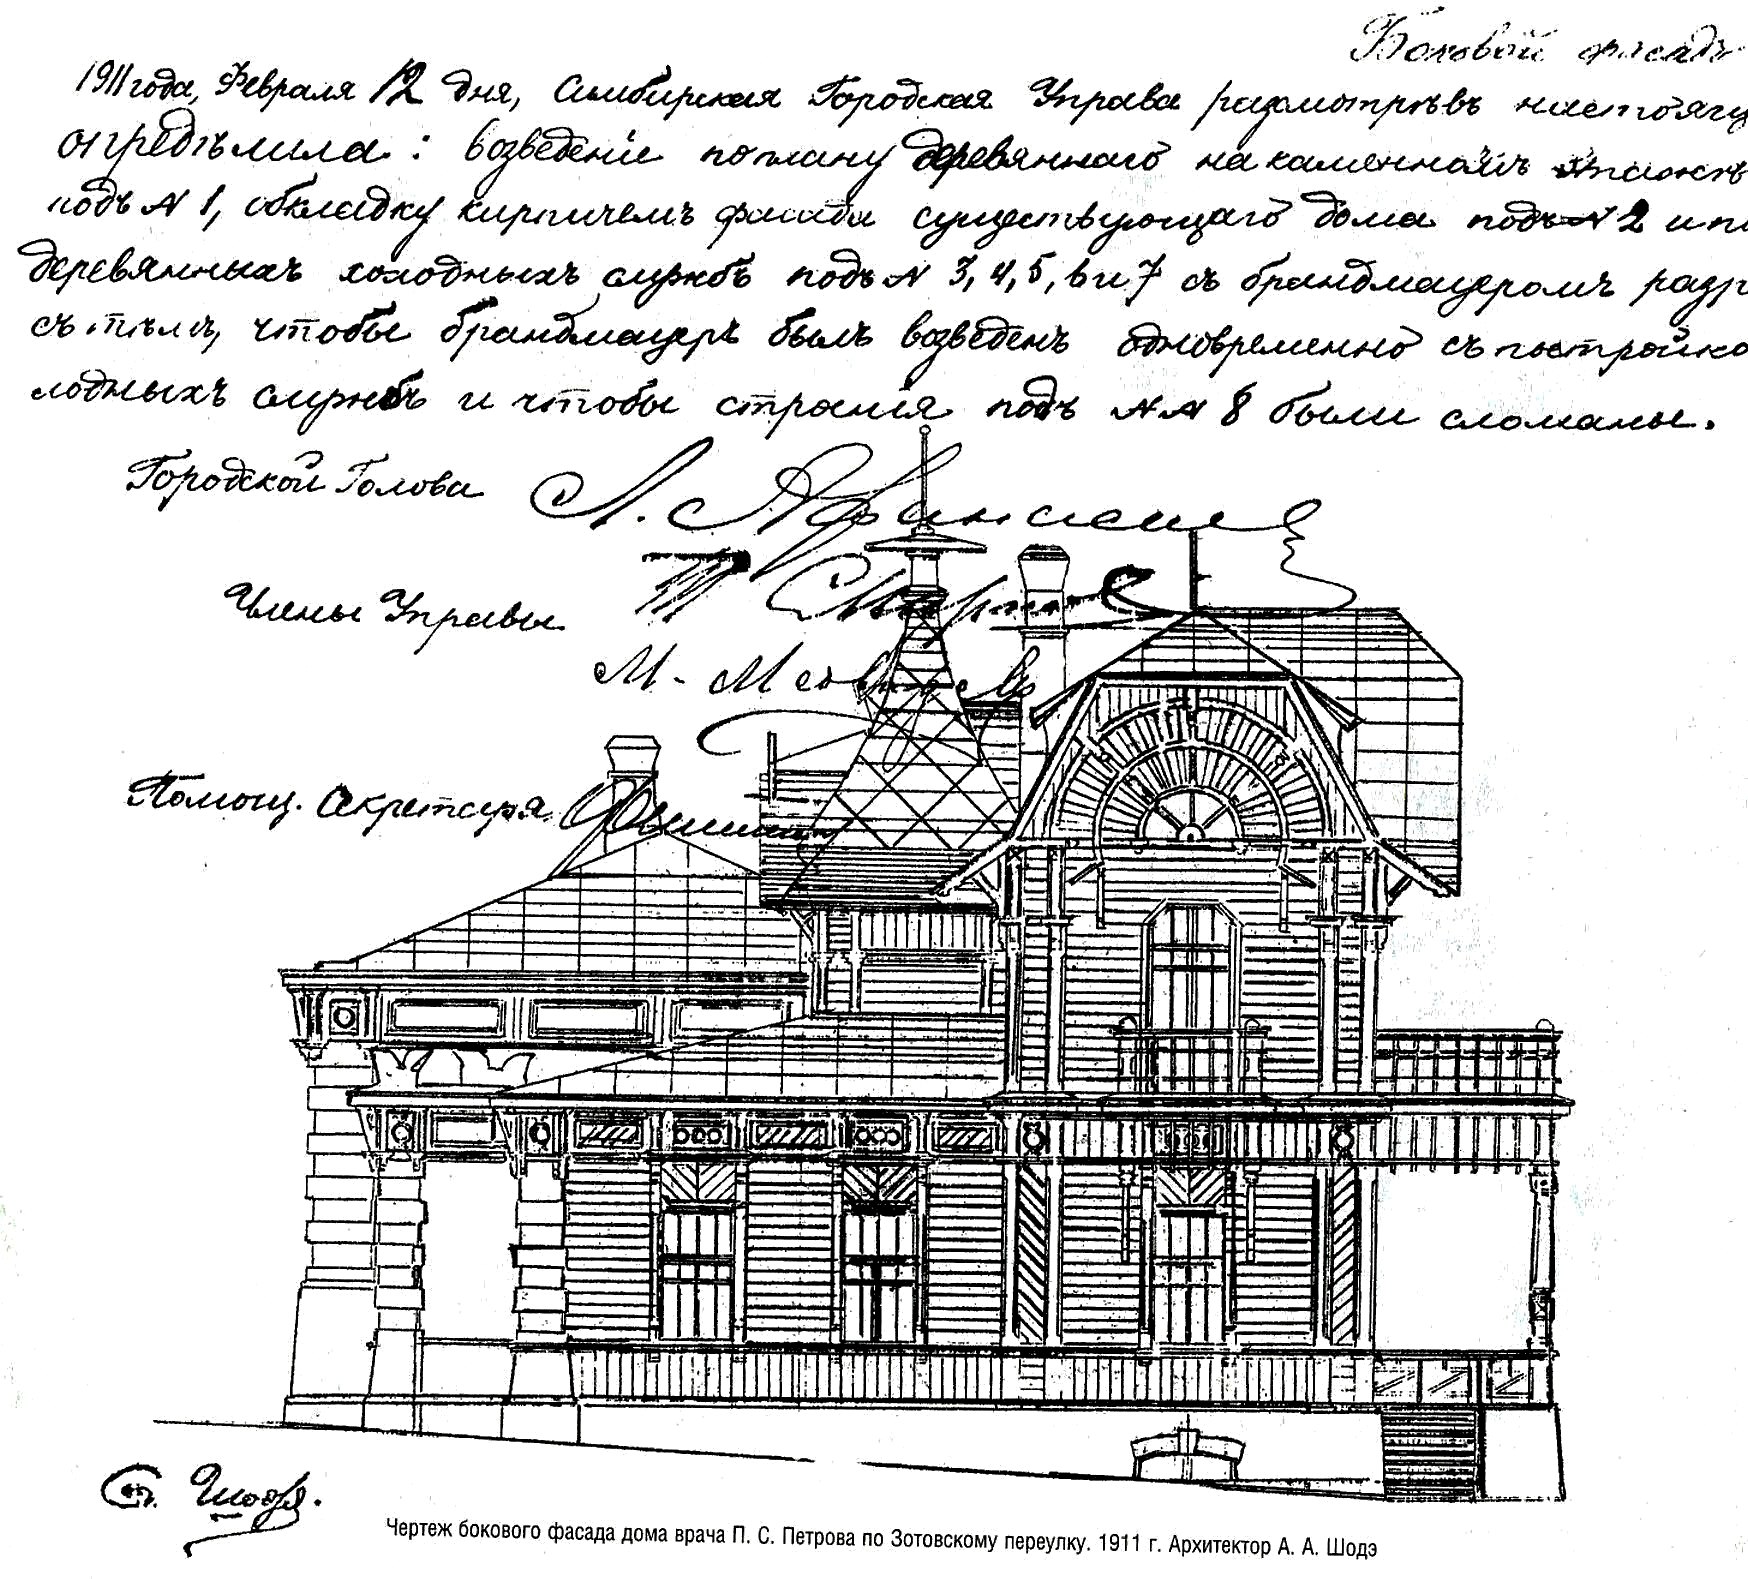 Боковой фасадъ
1911 года, Февраля 12 дня, Симбирская Городская Управа разсмотрѣвъ настоящ
опредѣлила: возведеніе по плану деревяннаго на каменномъ этажѣ
подъ № 1, обкладку кирпичемъ фасада существующаго дома подъ № 2 и по
деревянныхъ холодныхъ службъ подъ № 3, 4, 5, 6 и 7 съ брандмауеромъ разр
съ тѣмъ, чтобы брандмауеръ былъ возведенъ одновременно съ постройко
лодныхъ службъ и чтобы строенія подъ №№ 8 были сломаны.
Городской Голова Л. Афанасьевъ
Члены Управы
Помощ. Секретаря
Шодэ.
Чертеж бокового фасада дома врача П. С. Петрова по Зотовскому переулку. 1911 г. Архитектор А. А. Шодэ